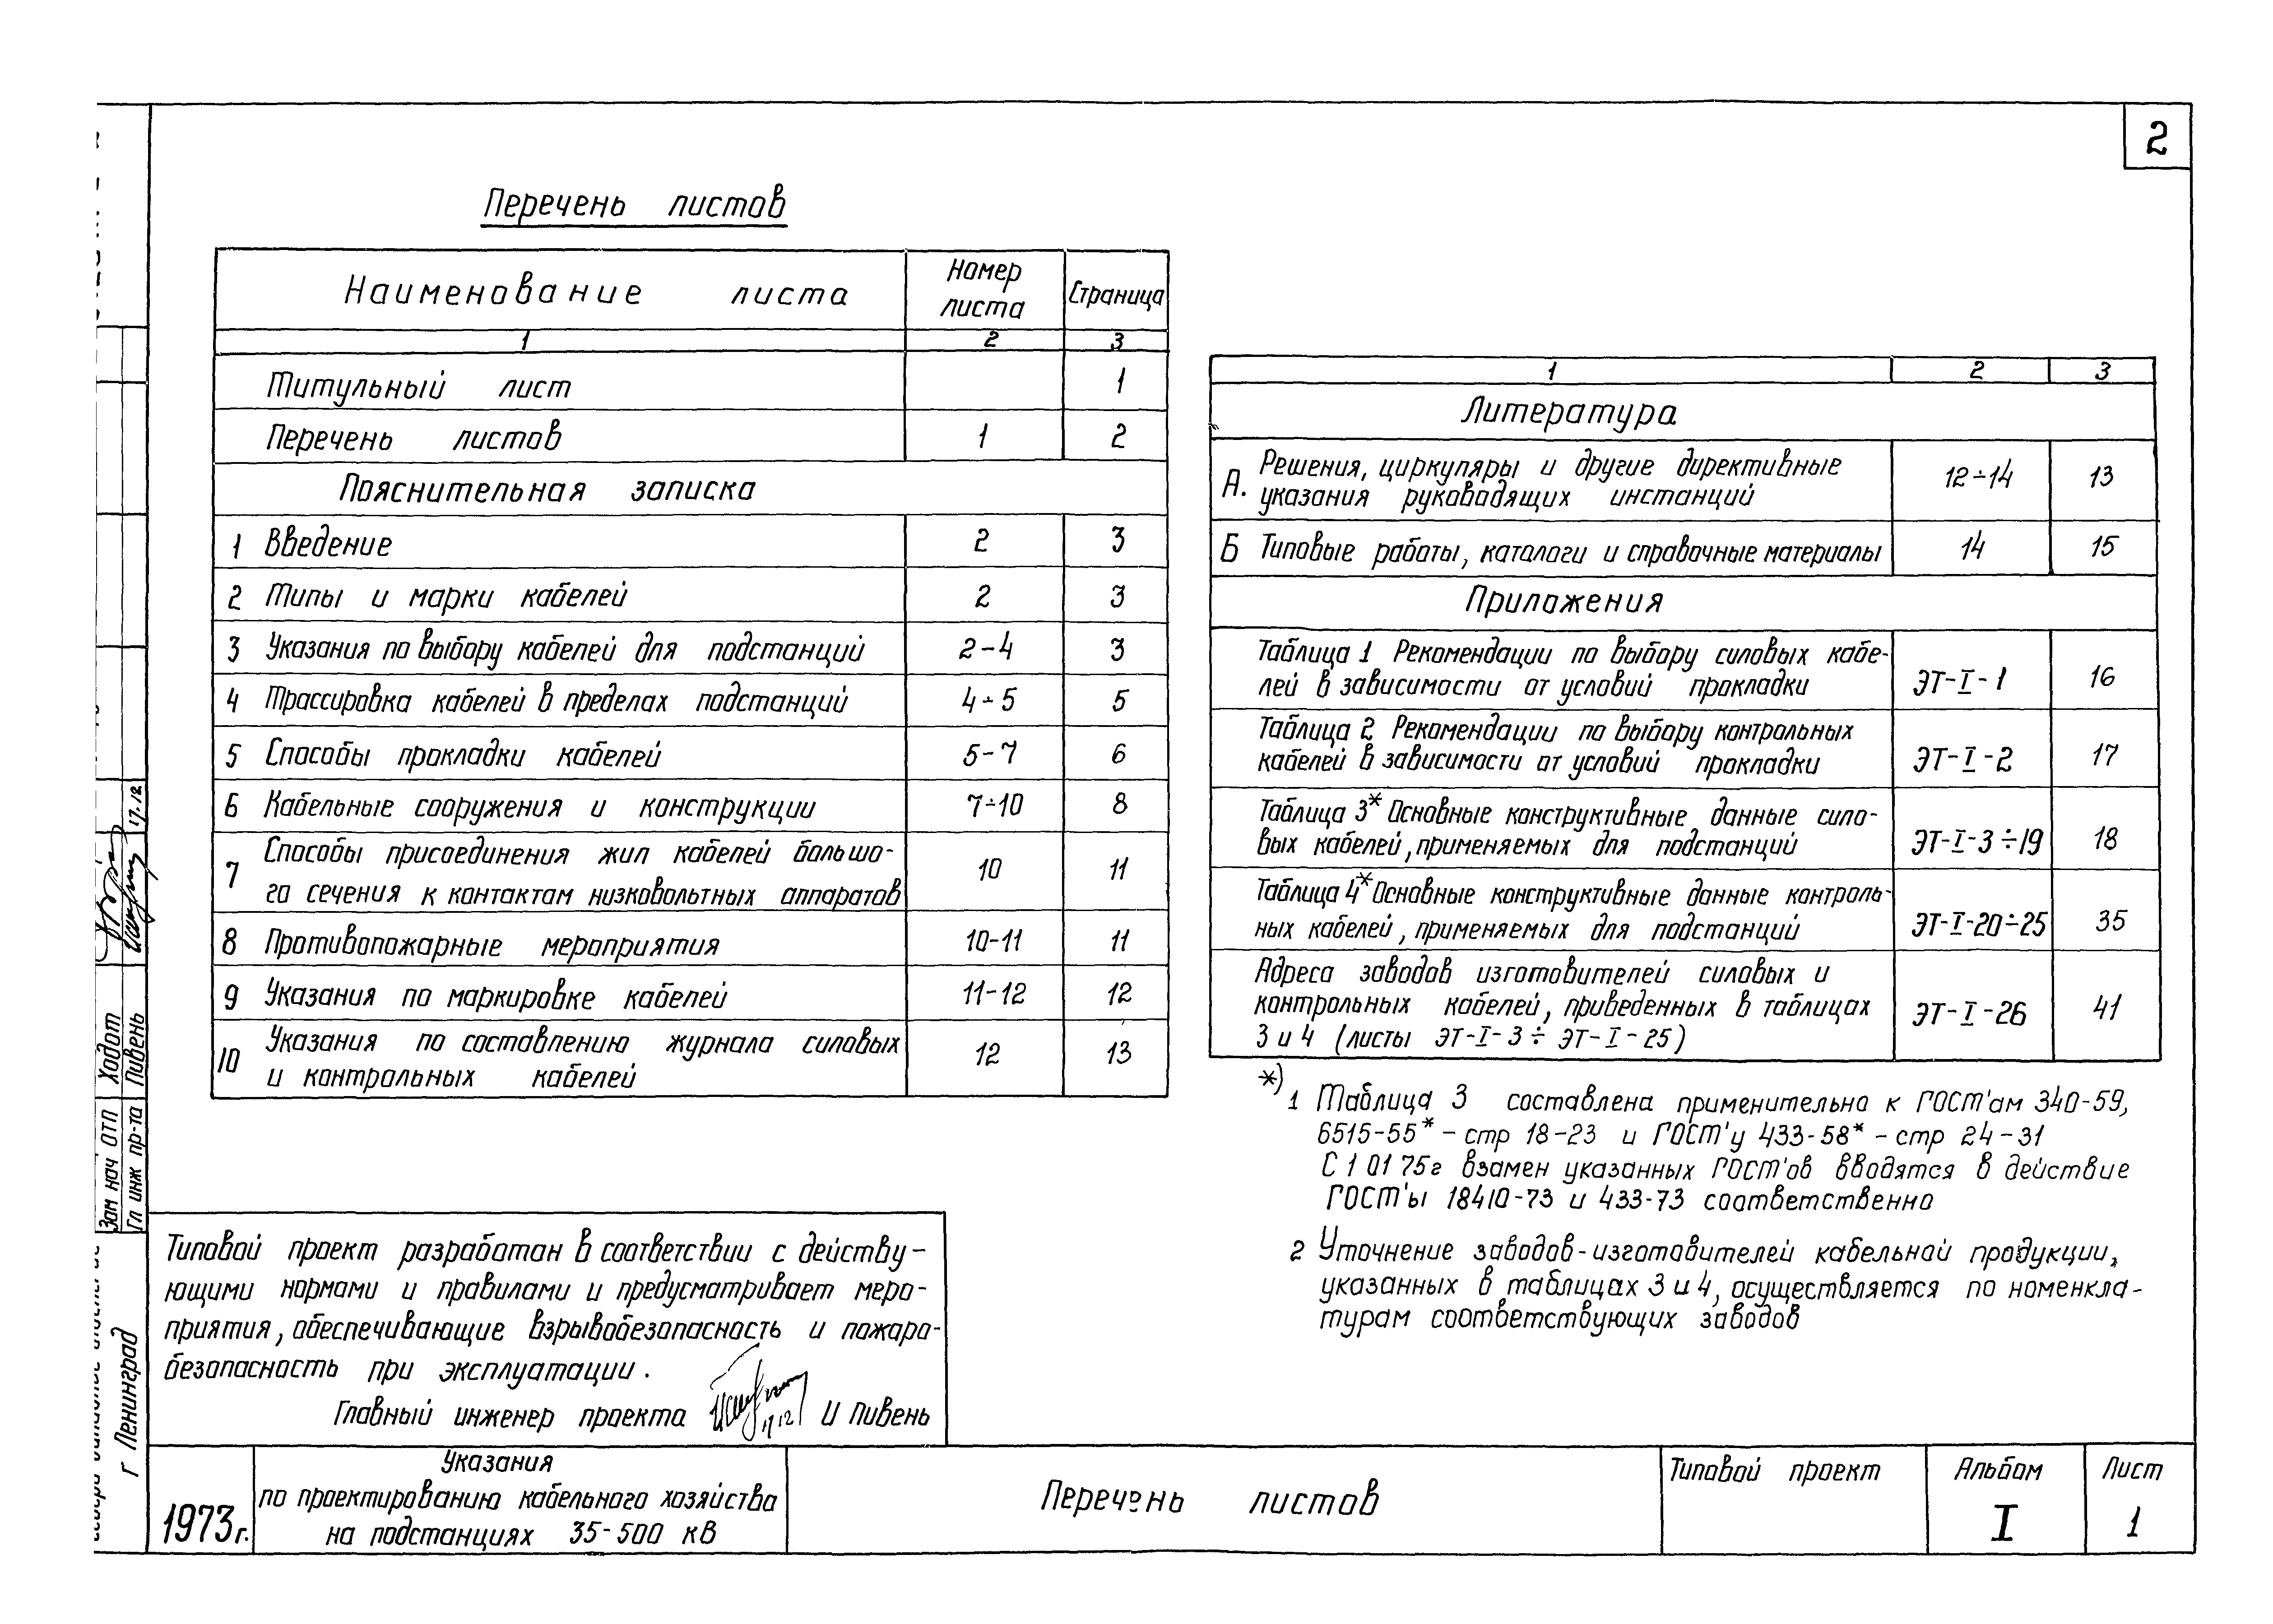 2
Перечень листов
Наименование листа
Номер листа
Страница
1 2 3
Титульный лист 1
Перечень листов 1 2
Пояснительная записка
1 Введение 2 3
2 Типы и марки кабелей 2 3
3 Указания по выбору кабелей для подстанций 2-4 3
4 Трассировка кабелей в пределах подстанций 4÷5 5
5 Способы прокладки кабелей 5-7 6
6 Кабельные сооружения и конструкции 7÷10 8
7 Способы присоединения жил кабелей большо-
го сечения к контактам низковольтных аппаратов 10 11
8 Противопожарные мероприятия 10-11 11
9 Указания по маркировке кабелей 11-12 12
10 Указания по составлению журнала силовых
и контрольных кабелей 12 13
1 2 3
Литература
А. Решения, циркуляры и другие директивные
указания руководящих инстанций 12÷14 13
Б Типовые работы, каталоги и справочные материалы 14 15
Приложения
Таблица 1 Рекомендации по выбору силовых кабе-
лей в зависимости от условий прокладки ЭТ-I-1 16
Таблица 2 Рекомендации по выбору контрольных
кабелей в зависимости от условий прокладки ЭТ-I-2 17
Таблица 3* Основные конструктивные данные сило-
вых кабелей, применяемых для подстанций ЭТ-I-3÷19 18
Таблица 4* Основные конструктивные данные контроль-
ных кабелей, применяемых для подстанций ЭТ-I-20÷25 35
Адреса заводов изготовителей силовых и
контрольных кабелей, приведенных в таблицах
3 и 4 (листы ЭТ-I-3÷ ЭТ-I-25) ЭТ-I-26 41
*)
1 Таблица 3 составлена применительно к ГОСТ'ам 340-59,
6515-55* - стр 18-23 и ГОСТ'у 433-58* - стр 24-31
С 1 01 75г взамен указанных ГОСТ'ов вводятся в действие
ГОСТ'ы 18410-73 и 433-73 соответственно
2 Уточнение заводов-изготовителей кабельной продукции,
указанных в таблицах 3 и 4, осуществляется по номенкла-
турам соответствующих заводов
Типовой проект разработан в соответствии с действу-
ющими нормами и правилами и предусматривает меро-
приятия, обеспечивающие взрывобезопасность и пожаро-
безопасность при эксплуатации.
Главный инженер проекта 17 12 И Пивень
Зам нач ОТП Ходот
Гл инж пр-та Пивень 17.12
г Ленинград
1973г.
Указания
по проектированию кабельного хозяйства
на подстанциях 35-500 кВ
Перечень листов
Типовой проект
Альбом
I
Лист
1